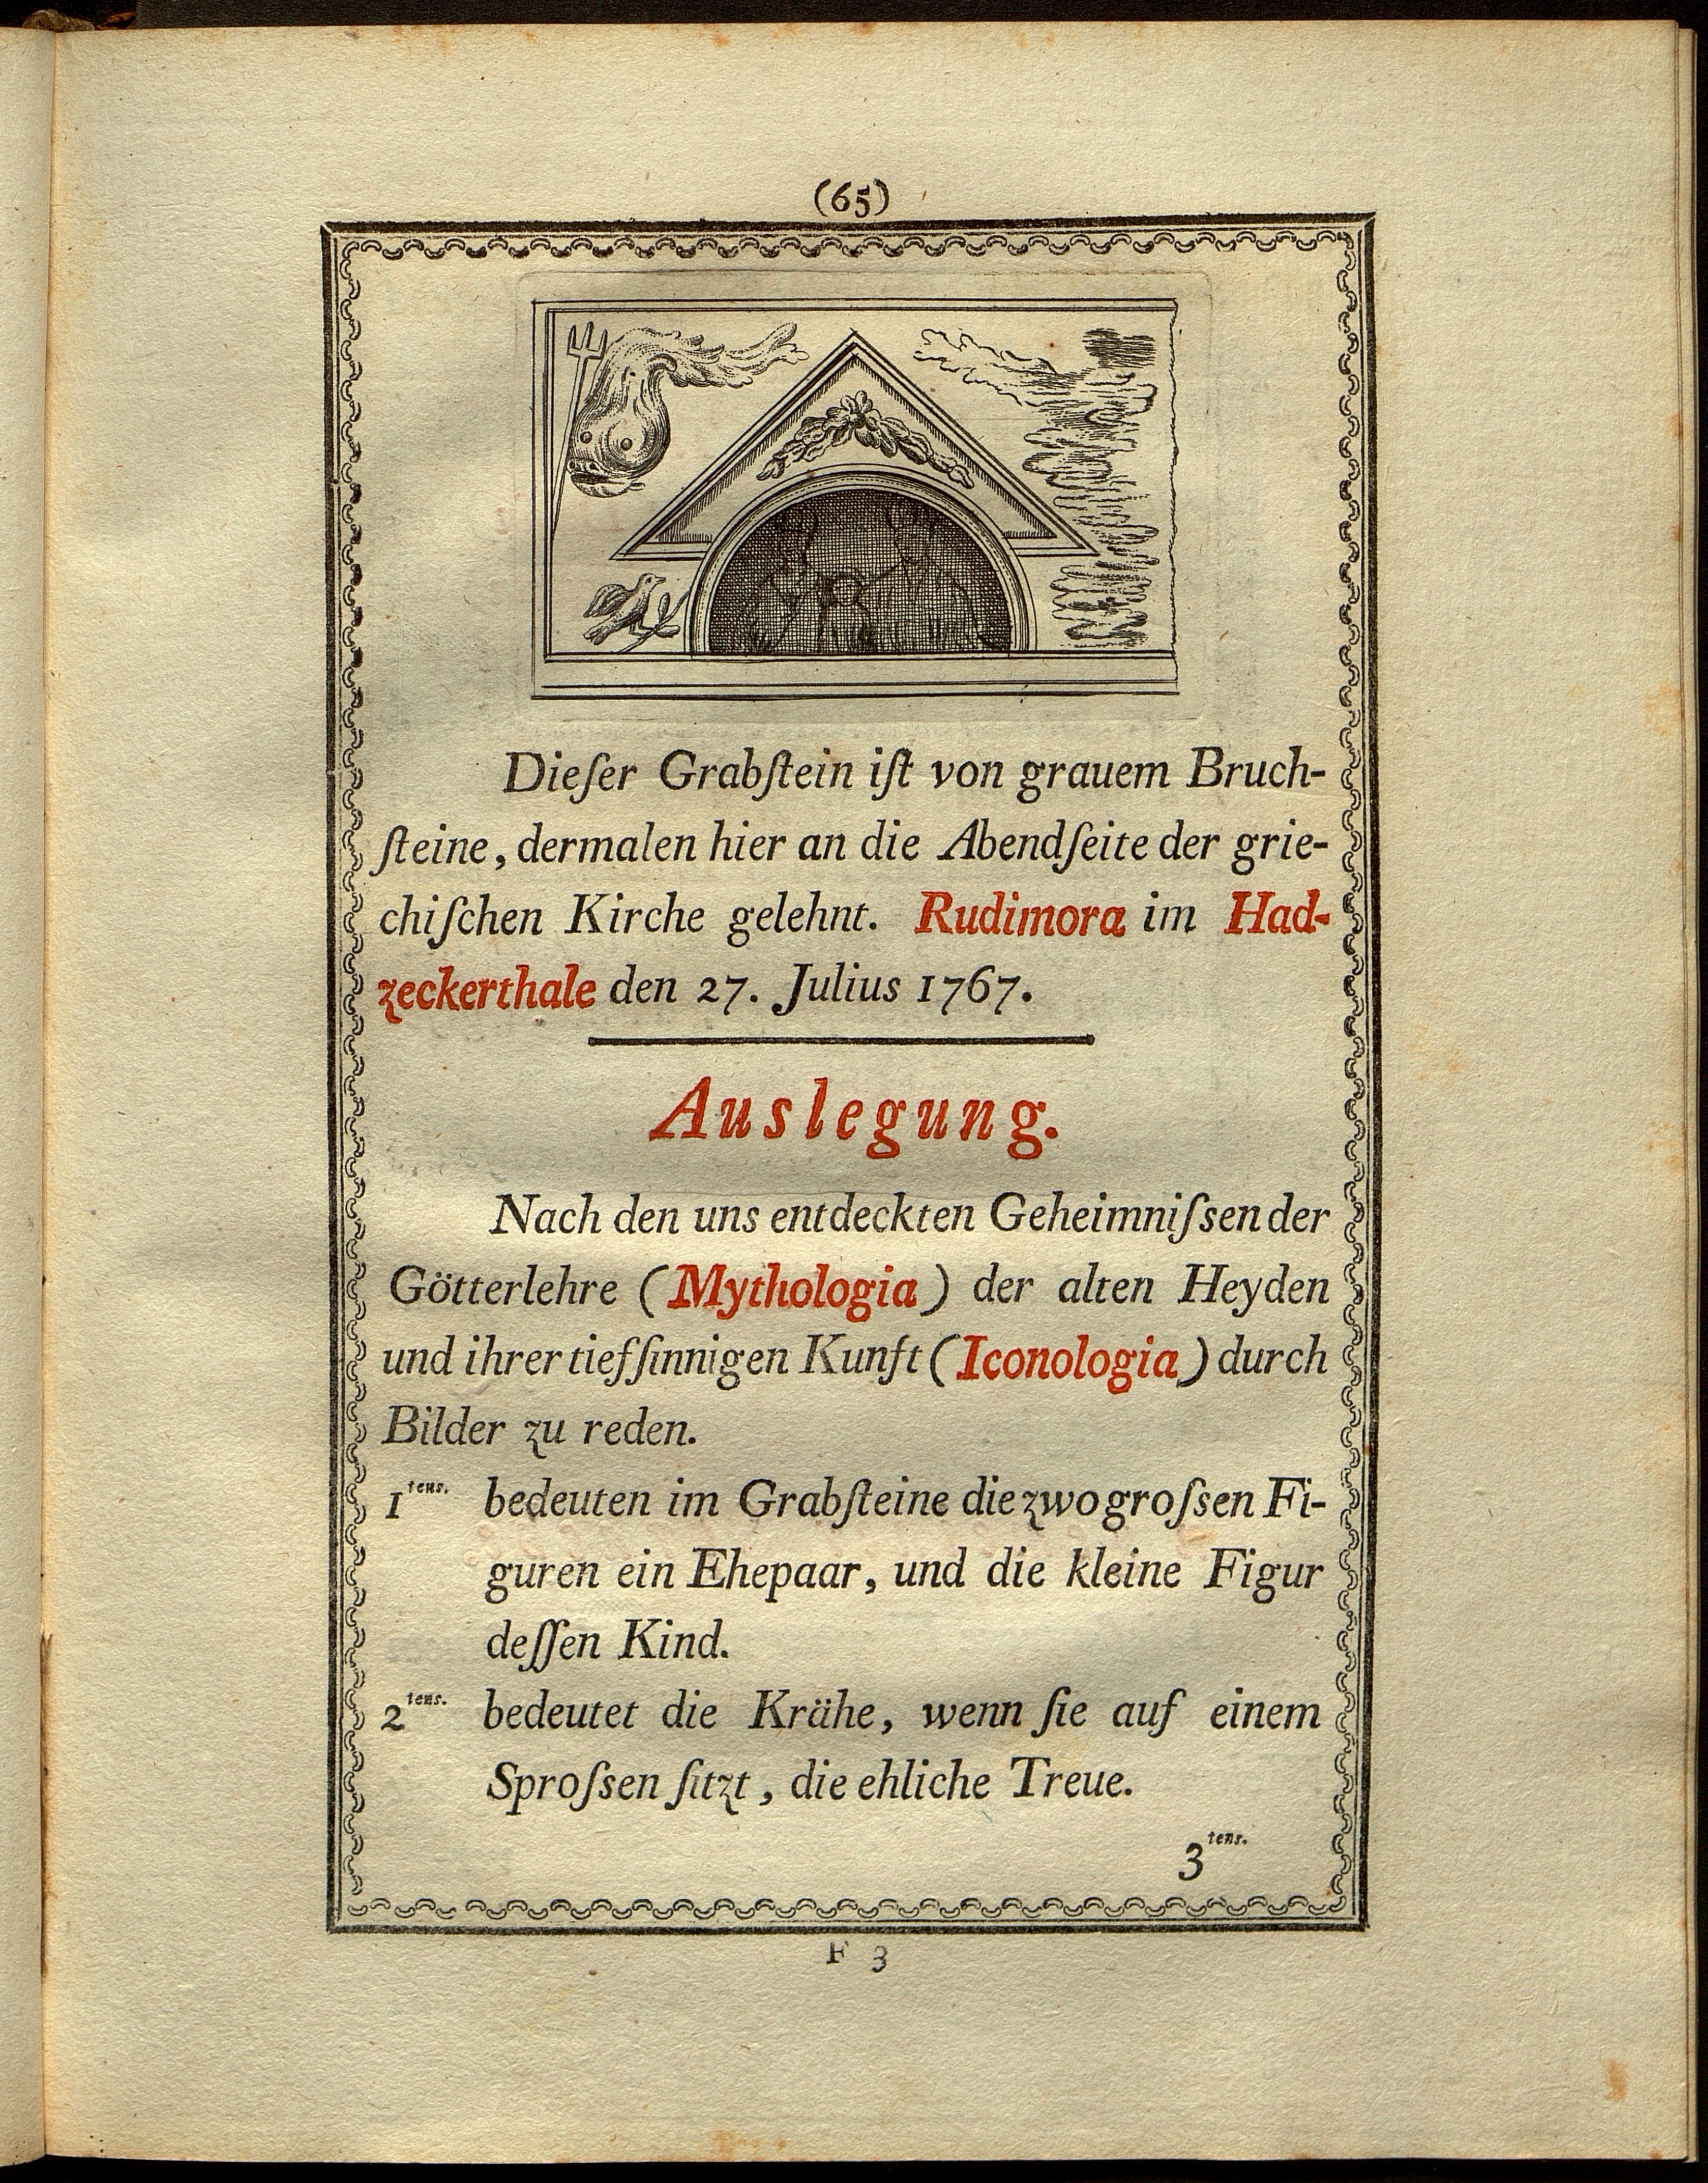 (65)
Dieſer Grabſtein iſt von grauem Bruch-
ſteine, dermalen hier an die Abendſeite der grie-
chiſchen Kirche gelehnt. Rudimora im Had-
zeckerthale den 27. Julius 1767.
Auslegung.
Nach den uns entdeckten Geheimniſsen der
Götterlehre (Mythologia) der alten Heyden
und ihrer tiefſinnigen Kunſt (Iconologia) durch
Bilder zu reden.
1tens. bedeuten im Grabſteine die zwo groſsen Fi-
guren ein Ehepaar, und die kleine Figur
deſſen Kind.
2tens. bedeutet die Krähe, wenn ſie auf einem
Sproſsen ſitzt, die ehliche Treue.
3tens.
F 3